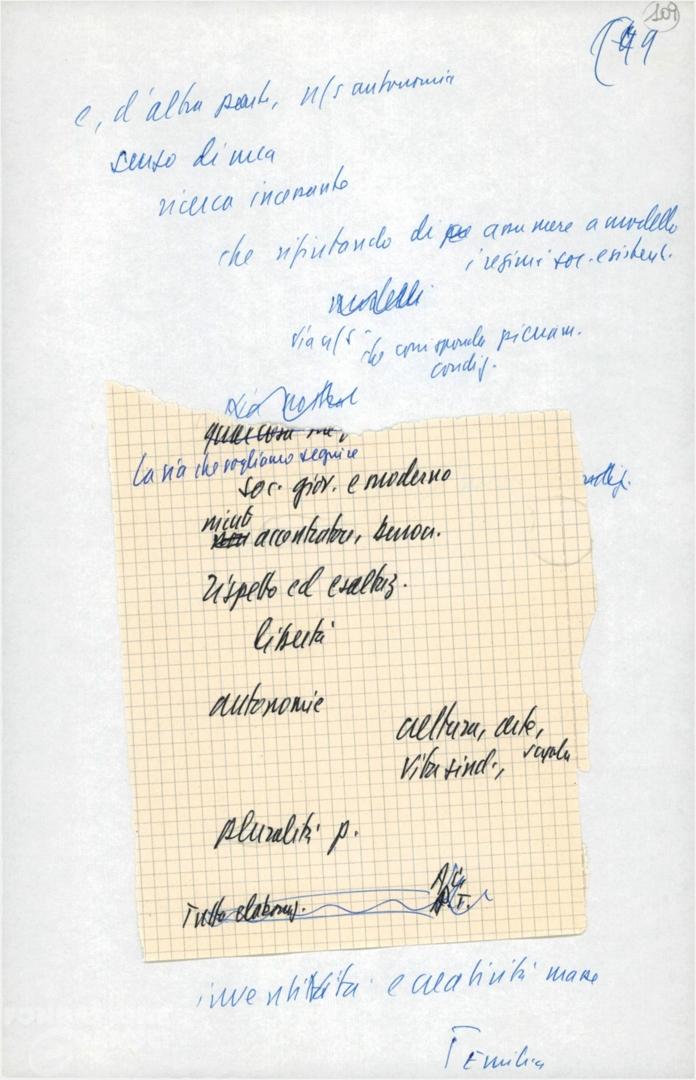 109
49
e, d'altra parte, n/s autonomia
senso di una
ricerca incessante
che rifiutando di assumere a modello
i regimi soc. esistent.
modelli
via n/s che corrisponda pienam.
condiz.
La nostra
qualcosa
La via che vogliamo seguire
soc. giov. e moderno
niente accentratore, buroc.
rispetto ed esaltaz.
libertà
autonomie
cultura, arte,
vita sind., scuola
pluralità p.
Tutto elaboraz.
P.T.
inventività e creatività masse
Emilia